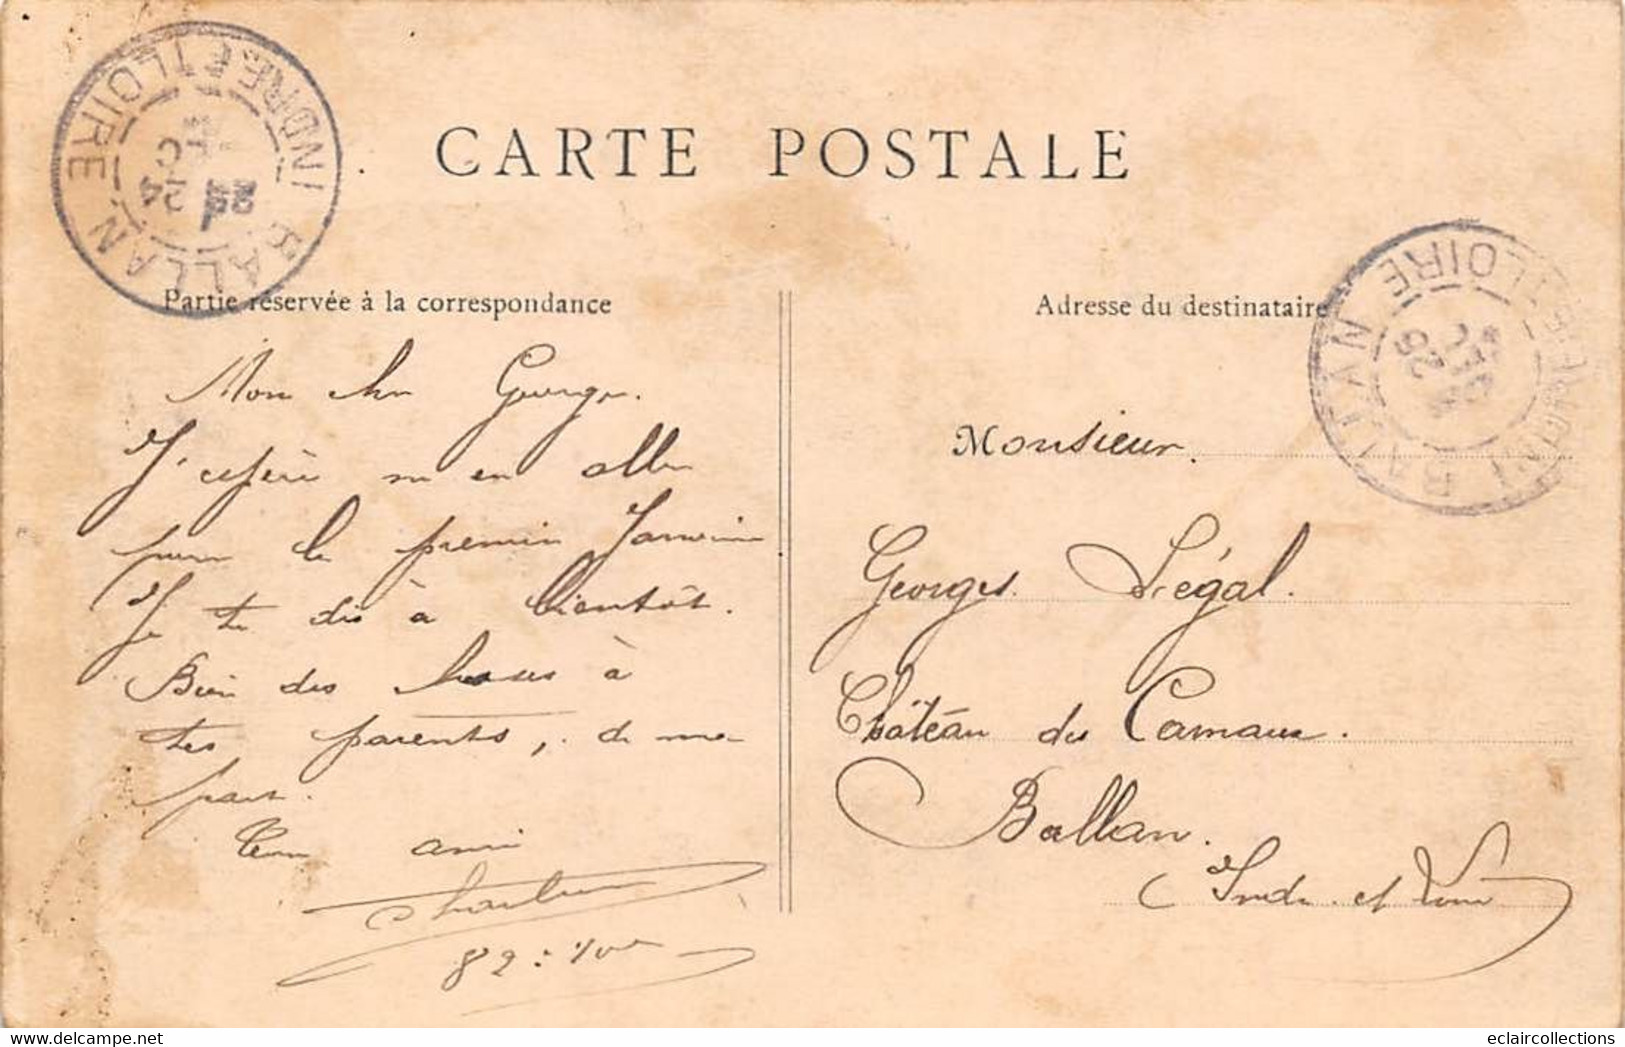 CARTE POSTALE
Partie réservée à la correspondance
Mon cher Georges.
J'espère m'en aller
pour le premier Janvier
Je te dis à bientôt.
Bien des choses à
tes parents, de ma
part.
Ton ami
82
Adresse du destinataire
Monsieur.
Georges Ségal.
Château des Camaux.
Ballan.
Indre et Loire
BALLAN
INDRE ET LOIRE
24
DEC
BALLAN
LOIRE
26
DEC
eclaircollections